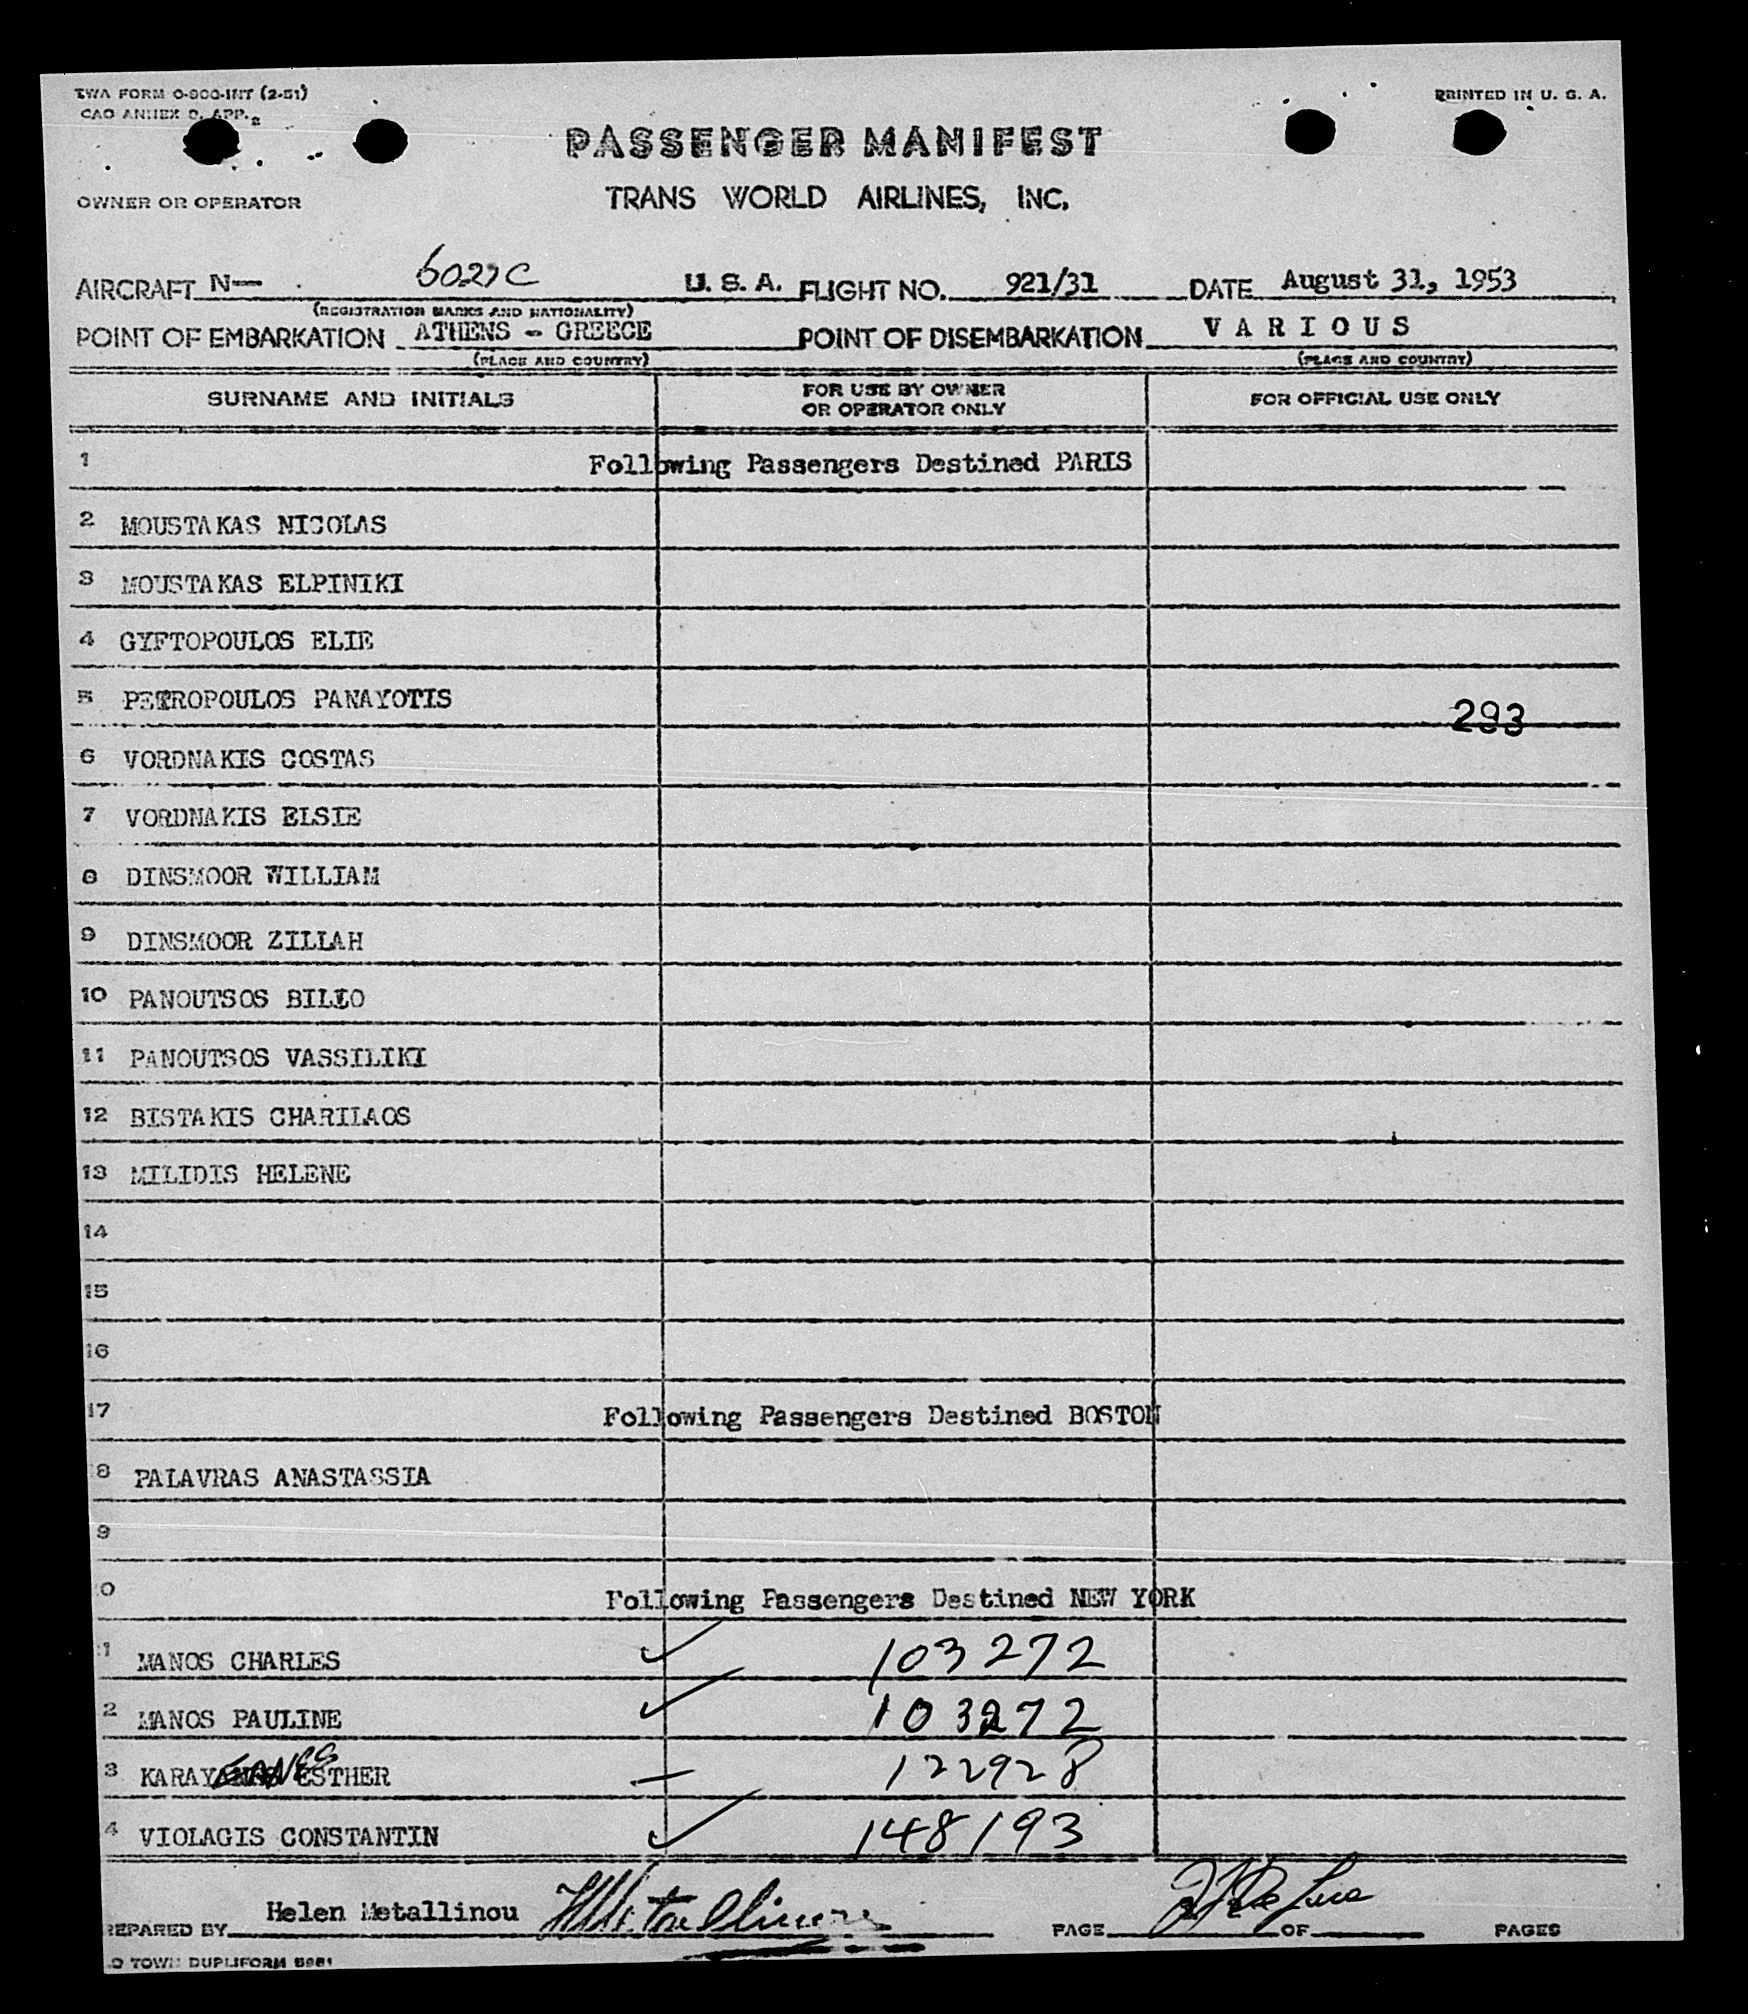 TWA FORM O-900-INT (2-51)
CAO ANNEX 9. APP. 2
PRINTED IN U. S. A.
PASSENGER MANIFEST
OWNER OR OPERATOR
TRANS WORLD AIRLINES, INC.
AIRCRAFT N— U. S. A. FLIGHT NO. 921/31 DATE August 31, 1953
(REGISTRATION MARKS AND NATIONALITY)
POINT OF EMBARKATION ATHENS - GREECE POINT OF DISEMBARKATION VARIOUS
(PLACE AND COUNTRY) (PLACE AND COUNTRY)
SURNAME AND INITIALS FOR USE BY OWNER OR OPERATOR ONLY FOR OFFICIAL USE ONLY
1 Following Passengers Destined PARIS
2 MOUSTAKAS NICOLAS
3 MOUSTAKAS ELPINIKI
4 GYFTOPOULOS ELIE
5 PETROPOULOS PANAYOTIS 293
6 VORDNAKIS COSTAS
7 VORDNAKIS ELSIE
8 DINSMOOR WILLIAM
9 DINSMOOR ZILLAH
10 PANOUTSOS BILLO
11 PANOUTSOS VASSILIKI
12 BISTAKIS CHARILAOS
13 MILIDIS HELENE
14
15
16
17 Following Passengers Destined BOSTON
8 PALAVRAS ANASTASSIA
9
0 Following Passengers Destined NEW YORK
1 MANOS CHARLES 103272
2 MANOS PAULINE 103272
3 ESTHER 122928
4 VIOLAGIS CONSTANTIN 148193
Helen Metallinou
REPARED BY PAGE OF PAGES